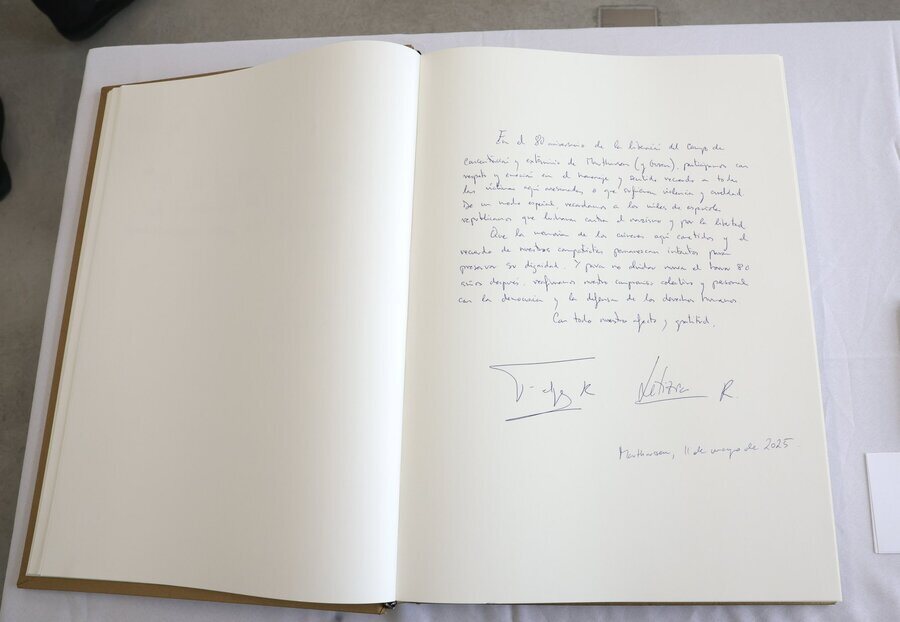 En el 80 aniversario de la liberación del Campo de
Concentración y exterminio de Mauthausen (y Gusen), participamos con
respeto y emoción en el homenaje y sentido recuerdo a todas
las víctimas aquí asesinadas o que sufrieron violencia y crueldad.
De un modo especial, recordamos a los miles de españoles
republicanos que lucharon contra el nazismo y por la libertad.
Que la memoria de los crímenes aquí cometidos y el
recuerdo de nuestros compatriotas permanezcan intactos para
preservar su dignidad. Y para no olvidar nunca el horror 80
años después, reafirmamos nuestro compromiso colectivo y personal
con la democracia y la defensa de los derechos humanos.
Con todo nuestro afecto y gratitud,
Felipe R Letizia R.
Mauthausen, 11 de mayo de 2025.